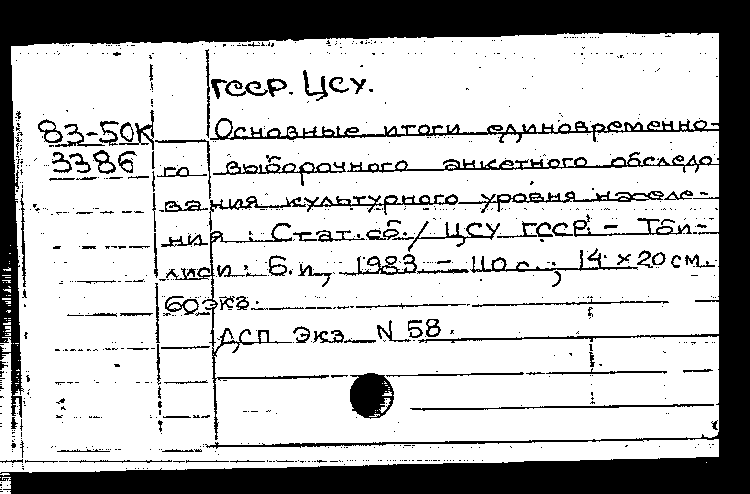 ГССР. ЦСУ.
83-50К Основные итоги единовременно-
3386 го выборочного анкетного обследо
вания культурного уровня населе-
ния : Стат.сб./ ЦСУ ГССР. - Тби-
лиси : Б.и, 1983. - 110 с. ; 14 × 20 см.
60экз.
ДСП Экз. N 58.